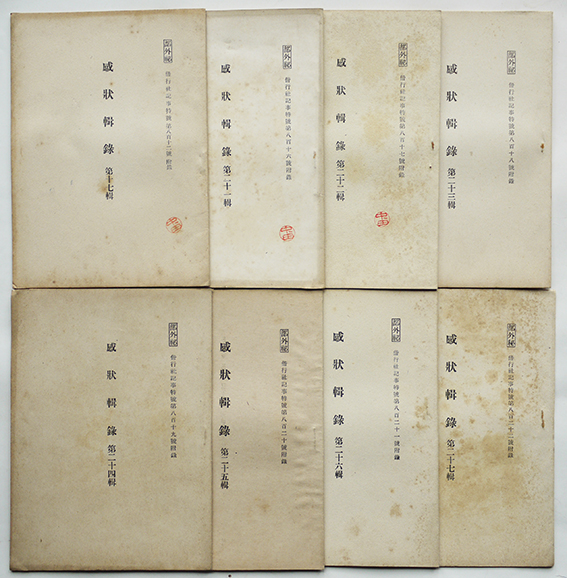 部外秘
偕行社記事特號第八百十二號附錄
感狀輯錄 第十七輯
部外秘
偕行社記事特號第八百十六號附錄
感狀輯錄 第二十一輯
部外秘
偕行社記事特號第八百十七號附錄
感狀輯錄 第二十二輯
部外秘
偕行社記事特號第八百十八號附錄
感狀輯錄 第二十三輯
部外秘
偕行社記事特號第八百十九號附錄
感狀輯錄 第二十四輯
部外秘
偕行社記事特號第八百二十號附錄
感狀輯錄 第二十五輯
部外秘
偕行社記事特號第八百二十一號附錄
感狀輯錄 第二十六輯
部外秘
偕行社記事特號第八百二十二號附錄
感狀輯錄 第二十七輯